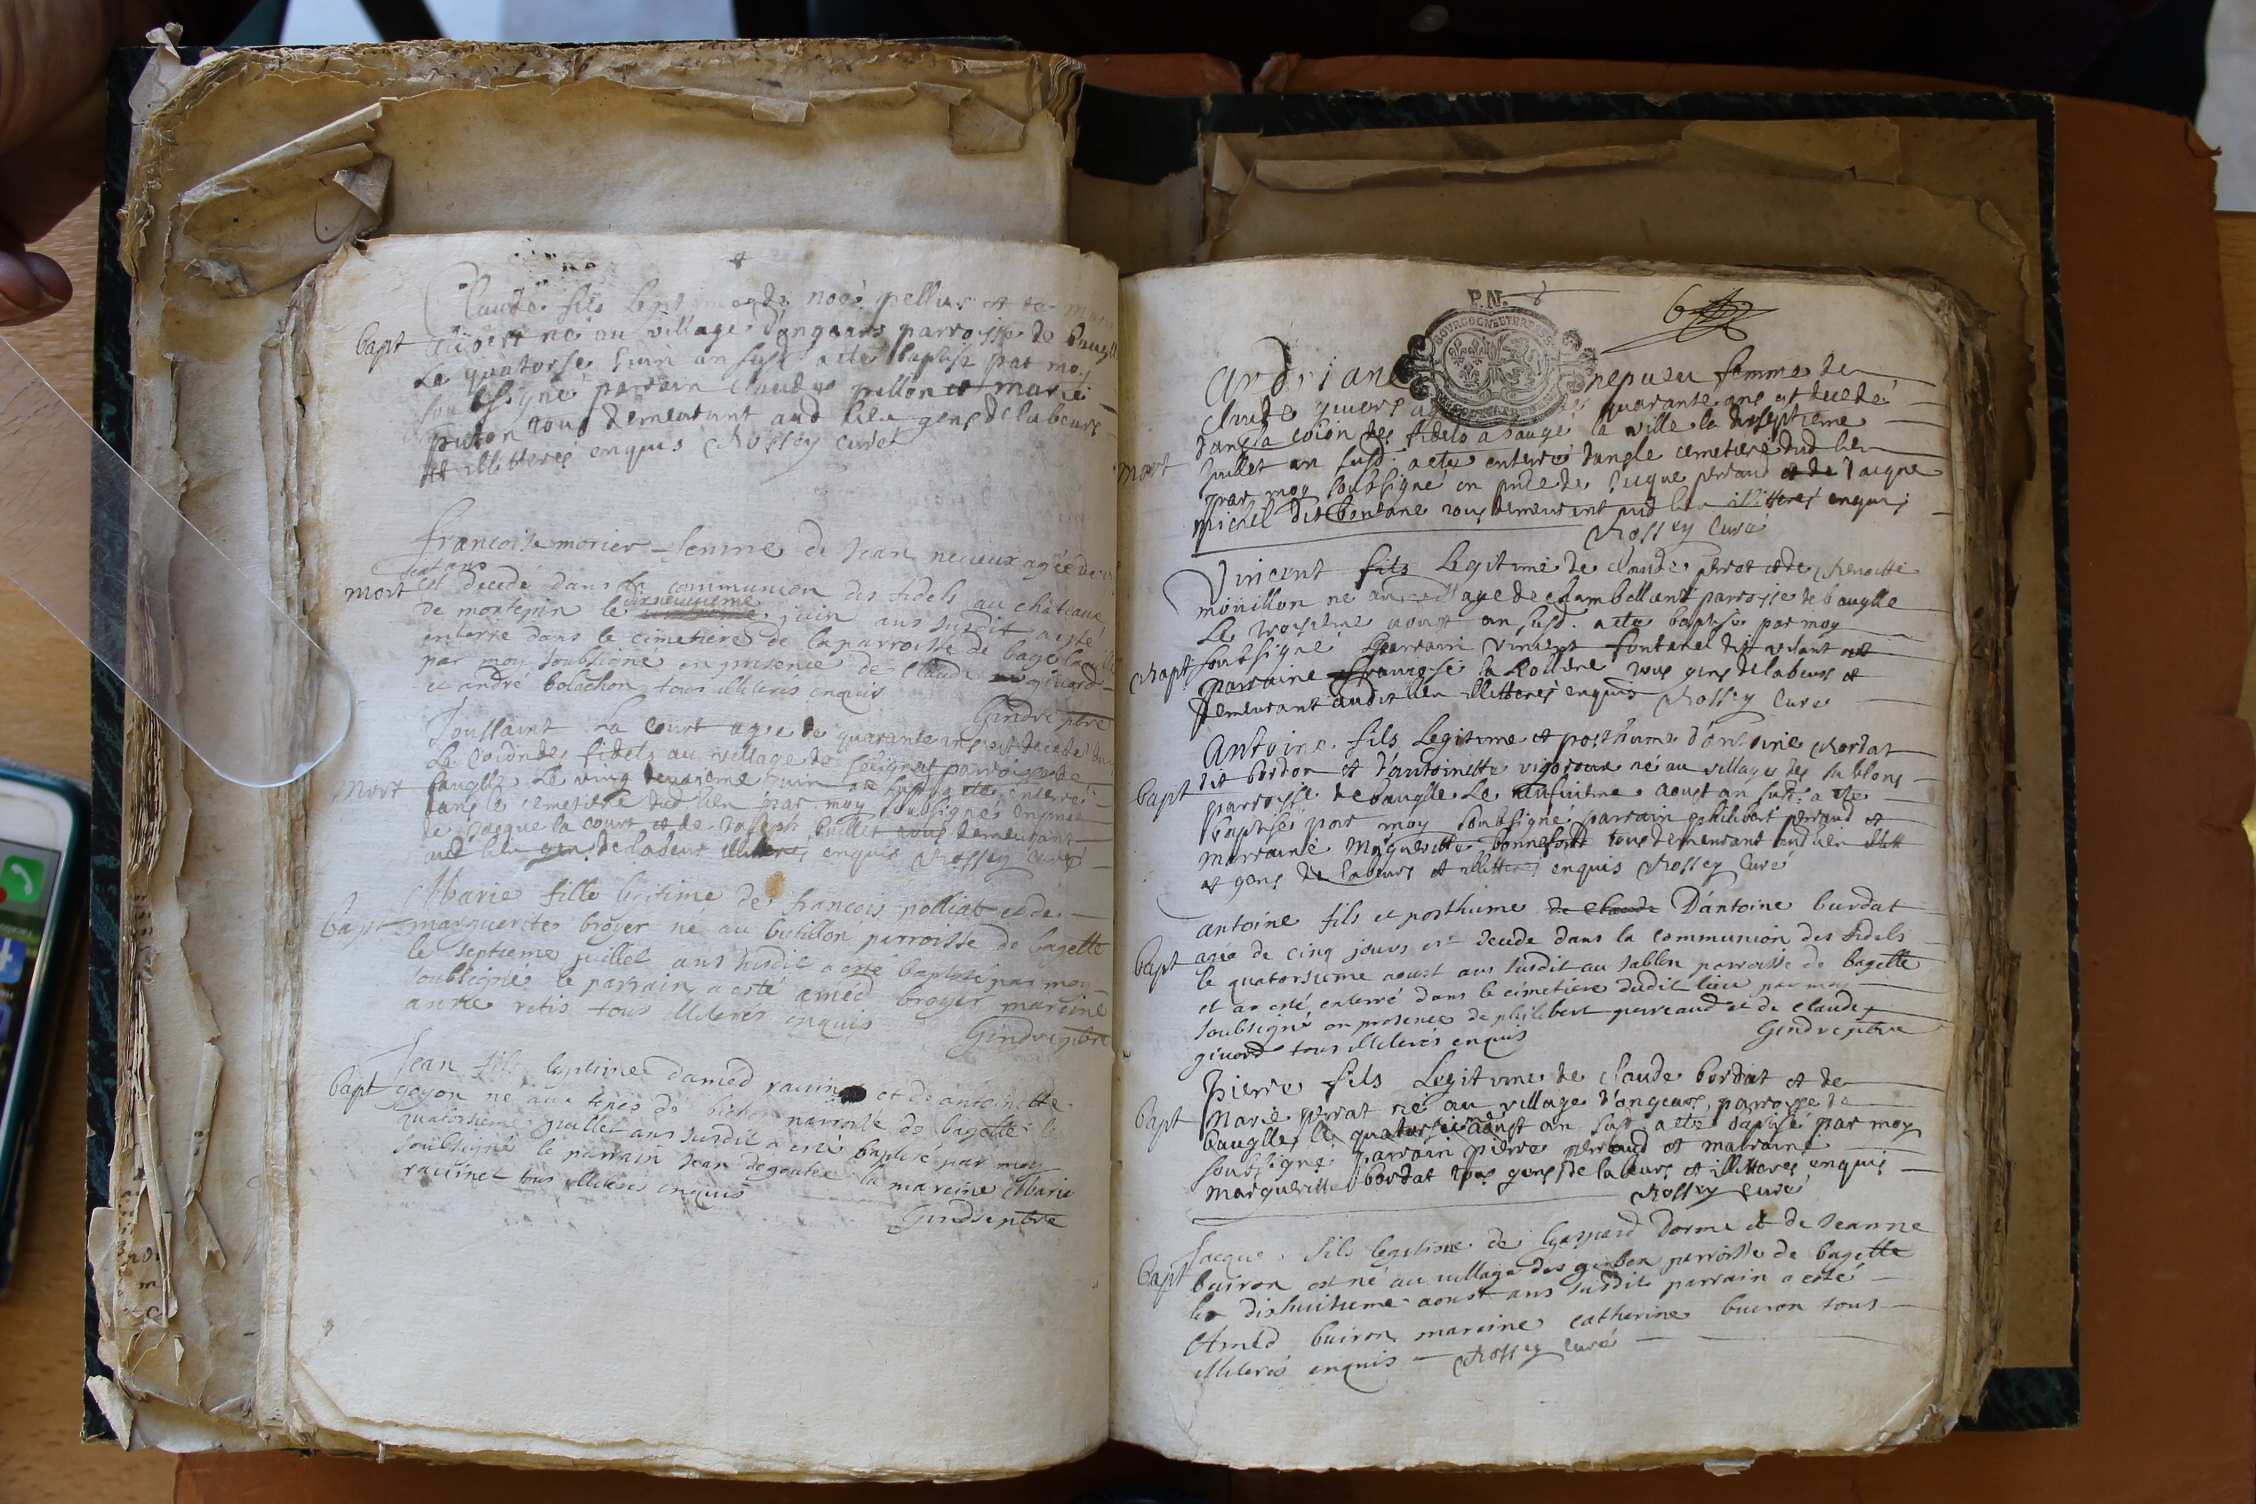 Claude fils legitime de noé pellus et de
bapt né au village d'angeurs parroisse de baugll
Le quatorse Juin an susd a eté baptisé par moy
soubsigné parrain Claude grillon et marie
puton tous demeurant aud lieu gens de labeurs
et illitterés enquis Rossey Curé
francoise morier femme de Jean agée de
mort est decedé dans la communion des fidels au château
de montepin le dixneuvieme juin ans susdit a esté
enterré dans le cimetiere de la parroisse de bagé la ville
par moy soubsigné en presence de Claude givord
et andré bolachon tous illiterés enquis
Gindre ptre
Toussaint La Court agé de quarante ans est decedé dans
La Coion des fidels au village de parroisse de
mort bauglle Le ving deuxieme Juin an susd a eté enterré
dans le cemetiere dud lieu par moy soubsigné en pnce
de Jacque la court et de Joseph buillet tous demeurant
aud lieu gens de labeur illiteres enquis Rossey Curé
Marie fille legitime de francois polliat et de
bapt marguerite broyer né au butillon parroisse de bagelle
le septieme juillet ans susdit a esté baptisé par moy
soubsigné le parrain a esté améd broyer mareine
anne retis tous illiterés enquis
Gindre ptre
Jean fils legitime daméd racuin et de antoinette
bapt goyon né aux de parroisse de bagelle le
quatorsieme juillet ans susdit a esté baptisé par moy
soubsigné le parrain Jean degoutte la mareine Marie
racuinet tous illiterés enquis
Gindre ptre
P.N.
6
Ardriane nepueu femme de
Claude givors quarante ans est decedé
dans la coion des fidels a baugé la ville le dixseptieme
mort Juillet an susd. a eté enterré dans le cemetiere dud lieu
par moy soubsigné en pnce de Jacque perraud et de Jacque
michel dit bontane tous demeurant aud lieu illitterés enquis
Rossey Curé
Vincent fils Legitime de Claude perrot et de Benoitte
monillon né au village de chambellant parroisse de bauglle
Le troisieme aoust an susd. a eté baptisé par moy
Bapt soubsigné parrain Vincent fontanel dit volant et
marraine francoise la Rollene tous gens de labeurs et
demeurant audit lieu illitterés enquis Rossey Curé
Antoine fils Legitime et posthume d'antoine Bordat
bapt dit bordon et d'antoinette vigoroux né au village des sablons
parroisse de bauglle Le neufvieme aoust an susd. a eté
baptisé par moy soubsigné parrain philibert perraud et
marraine Marguerite bonnefont tous demeurant aud lieu
et gens de labeurs et illitterés enquis Rossey Curé
antoine fils et posthume de Claude D'antoine burdat
bapt agée de cinq jours est decede dans la communion des fidels
le quatorsieme aoust ans susdit au sablon parroisse de bagelle
et at esté enterré dans le cimetiere dudit lieu par moy
soubsigné en presence de philibert perreaud et de Claude
givord tous illiterés enquis Gindre ptre
Pierre fils Legitime de Claude bordat et de
bapt Marie perrat né au village d'angeurs parroisse de
bauglle le quatorsieme aoust an susd. a eté baptisé par moy
soubsigné parrain pierre perraud et marraine
Marguerite bordat tous gens de labeurs et illitterés enquis
Rossey Curé
Jacque fils legitime de Gaspard Dorme et de Jeanne
bapt buiron est né au village des gerbon parroisse de bagelle
le dishuitieme aoust ans susdit parrain a esté
Améd buiron mareine catherine buiron tous
illiterés enquis Rossey Curé